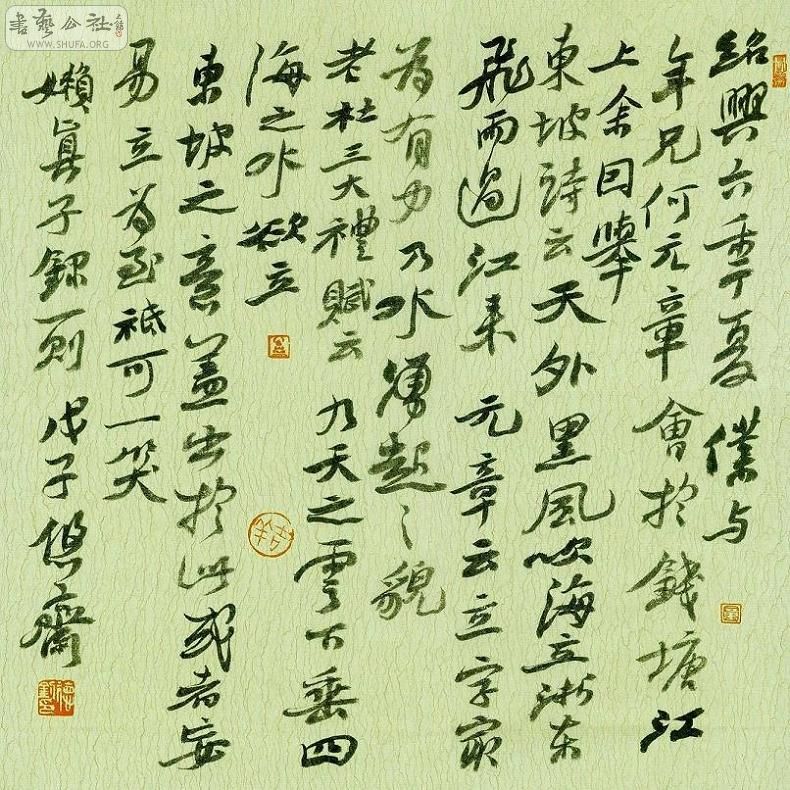 書藝公社
WWW.SHUFA.ORG
紹興六秊夏僕与
年兄何元章會於錢塘江
上余因舉
東坡詩云天外黑風吹海立浙东
飛雨過江來元章云立字最
為有力乃水湧起之貌
老杜三大禮賦云九天之雲下垂四
海之水欲立
東坡之意蓋出於此或者妄
易立为至祗可一笑
嬾真子錄一則 戊子悠齋